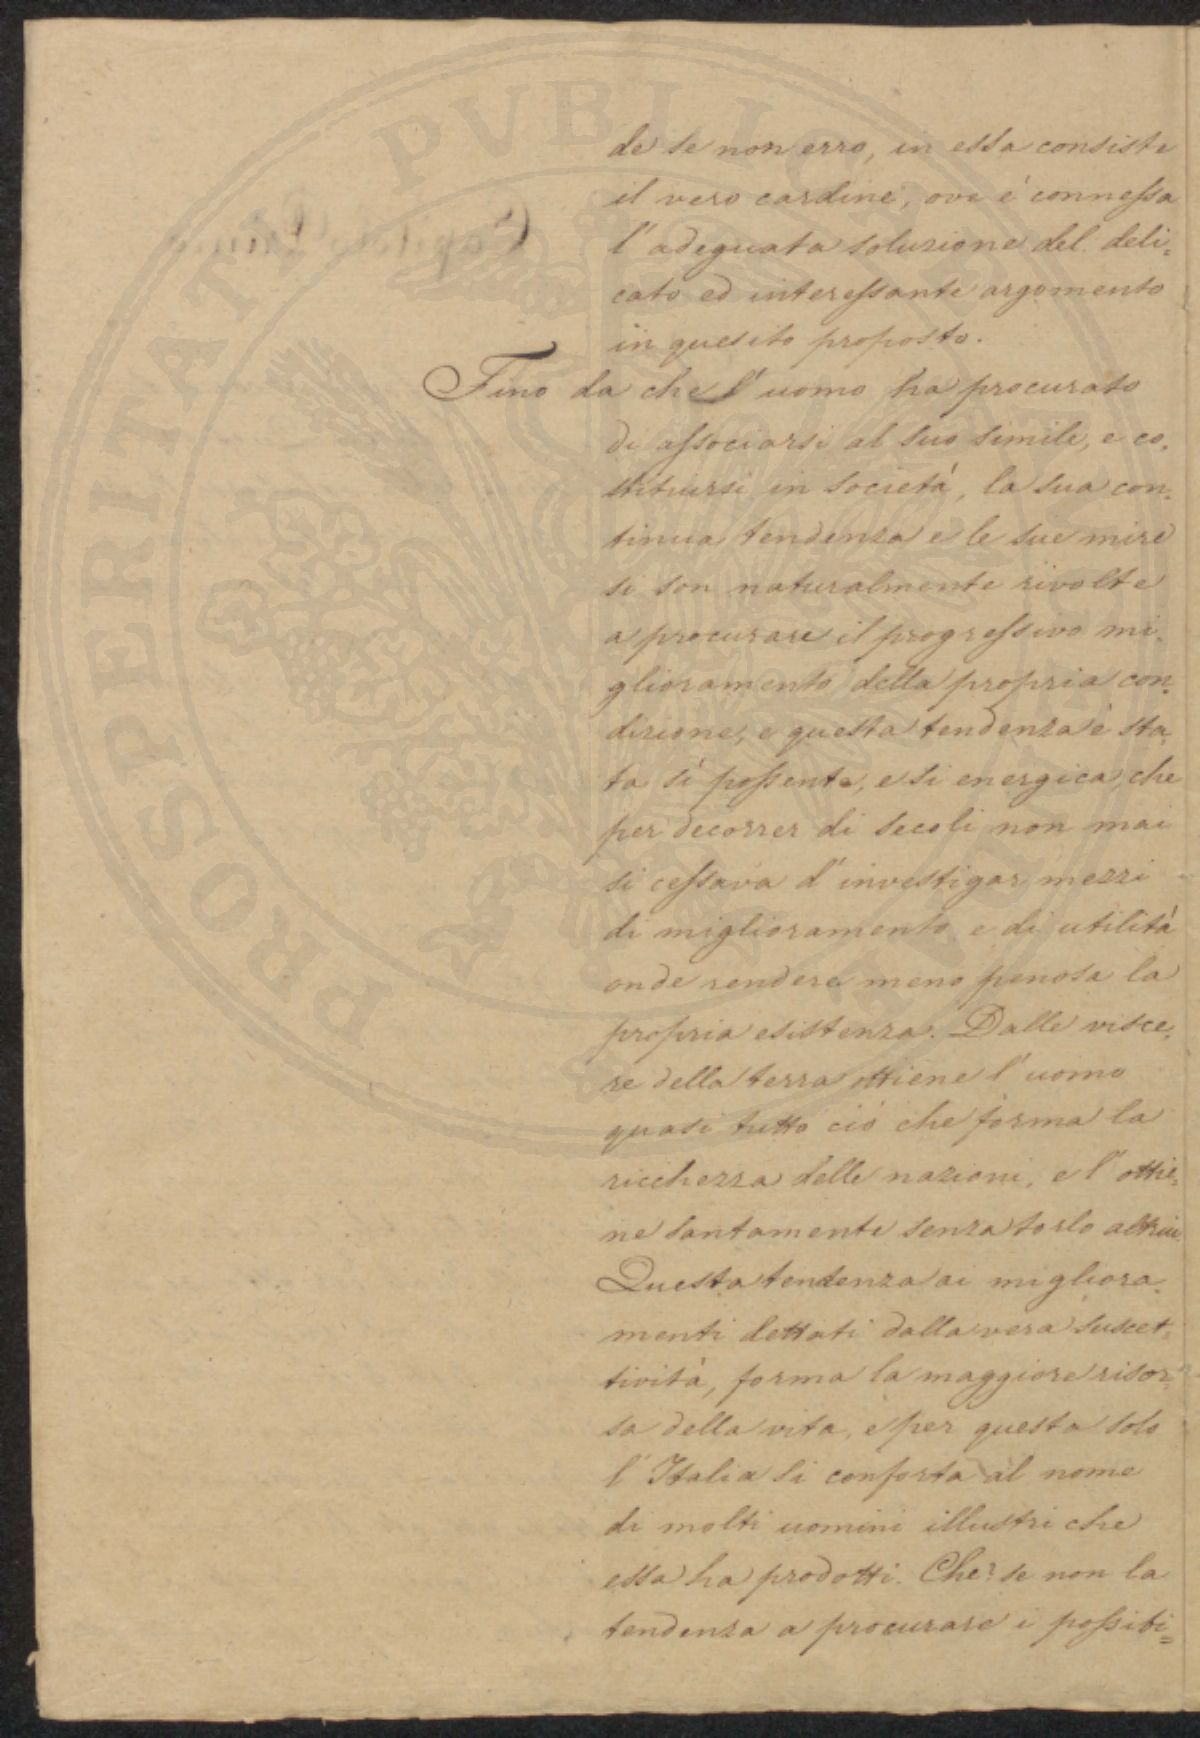 de se non erro, in essa consiste
il vero cardine, ove è connessa
l'adeguata soluzione del deli=
cato ed interessante argomento
in quesito proposto.
Fino da che l'uomo ha procurato
di associarsi al suo simile, e co,
stituirsi in società, la sua con=
tinua tendenza e le sue mire
si son naturalmente rivolte
a procurare il progressivo mi=
glioramento della propria con=
dizione, e questa tendenza è sta,
ta sì possente, e sì energica, che
per decorrer di secoli non mai
si cessava d'investigar mezzi
di miglioramento e di utilità
onde rendere meno penosa la
propria esistenza. Dalle visce,
re della terra ottiene l'uomo
quasi tutto ciò che forma la
ricchezza delle nazioni, e l'ottie=
ne santamente senza torlo altrui.
Questa tendenza ai migliora=
menti dettati dalla vera suscet=
tività, forma la maggiore risor=
sa della vita, e per questa solo
l'Italia si conforta al nome
di molti uomini illustri che
essa ha prodotti. Che? se non la
tendenza a procurare i possibi=
PROSPERITATI PVBLICAE